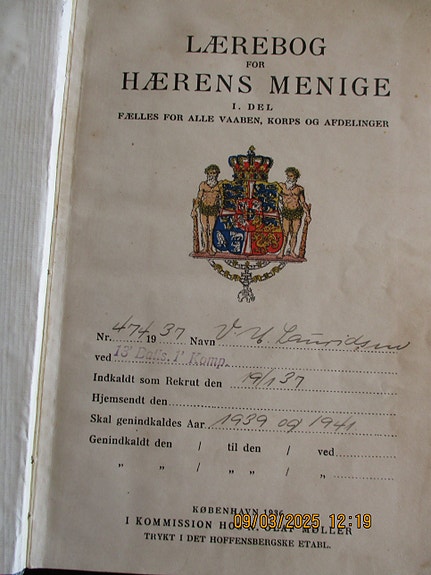 LÆREBOG
FOR
HÆRENS MENIGE
I. DEL
FÆLLES FOR ALLE VAABEN, KORPS OG AFDELINGER
Nr. 474 19 37 Navn V Lauridsen
ved 13' Batls. 1' Komp.
Indkaldt som Rekrut den 19/1 37
Hjemsendt den
Skal genindkaldes Aar 1939 og 1941
Genindkaldt den / til den / ved
„ „ / „ „ / „
KØBENHAVN
I KOMMISSION MØLLER
TRYKT I DET HOFFENSBERGSKE ETABL.
09/03/2025 12:19